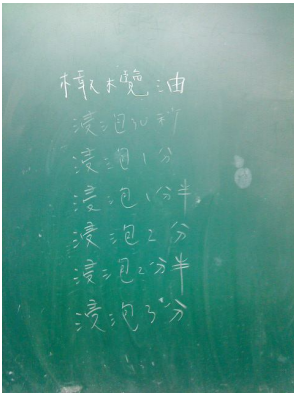 橄欖油
浸泡30秒
浸泡1分
浸泡1分半
浸泡2分
浸泡2分半
浸泡3分